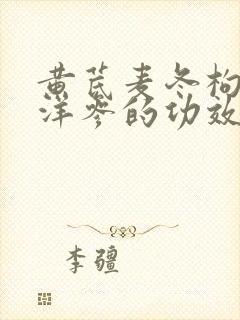 黄芪麦冬枸
洋参的功效
李疆